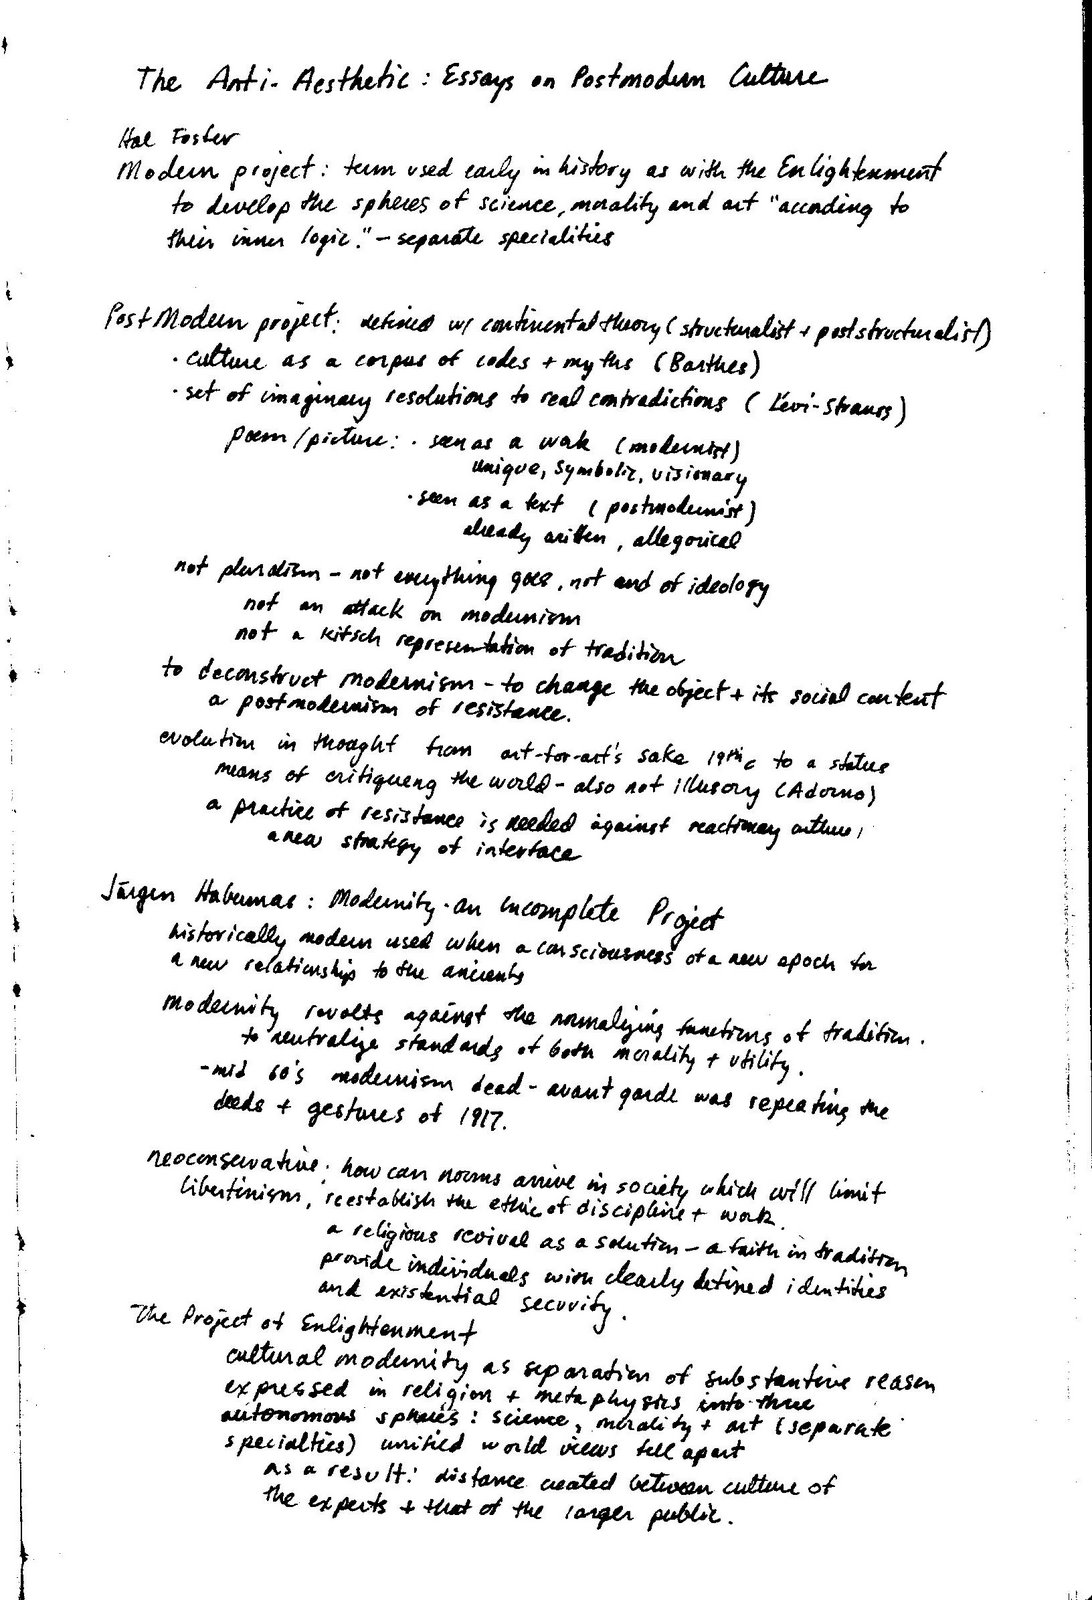 The Anti-Aesthetic: Essays on Postmodern Culture
Hal Foster
Modern project: term used early in history as with the Enlightenment
to develop the spheres of science, morality and art "according to
their inner logic." - separate specialities
PostModern project: defined w/ continental theory (structuralist + poststructuralist)
· culture as a corpus of codes + myths (Barthes)
· set of imaginary resolutions to real contradictions (Levi-Strauss)
poem/picture: · seen as a work (modernist)
unique, symbolic, visionary
· seen as a text (postmodernist)
already written, allegorical
not pluralism - not everything goes, not end of ideology
not an attack on modernism
not a kitsch representation of tradition
to deconstruct modernism - to change the object + its social content
a postmodernism of resistance.
evolution in thought from art-for-art's sake 19th c to a status
means of critiqueng the world - also not illusory (Adorno)
a practice of resistance is needed against reactionary culture,
a new strategy of interface
Jürgen Habermas: Modernity-an incomplete Project
historically modern used when a consciousness of a new epoch for
a new relationship to the ancients
Modernity revolts against the normalizing functions of tradition.
to neutralize standards of both morality + utility.
- mid 60's modernism dead - avant garde was repeating the
deeds + gestures of 1917.
neoconservative: how can norms arrive in society which will limit
libertinism, reestablish the ethic of discipline + work.
a religious revival as a solution - a faith in tradition
provide individuals with clearly defined identities
and existential security.
The Project of Enlightenment
cultural modernity as separation of substantive reason
expressed in religion + metaphysics into three
autonomous spheres: science, morality + art (separate
specialties) unified world views fell apart
as a result: distance created between culture of
the experts + that of the larger public.